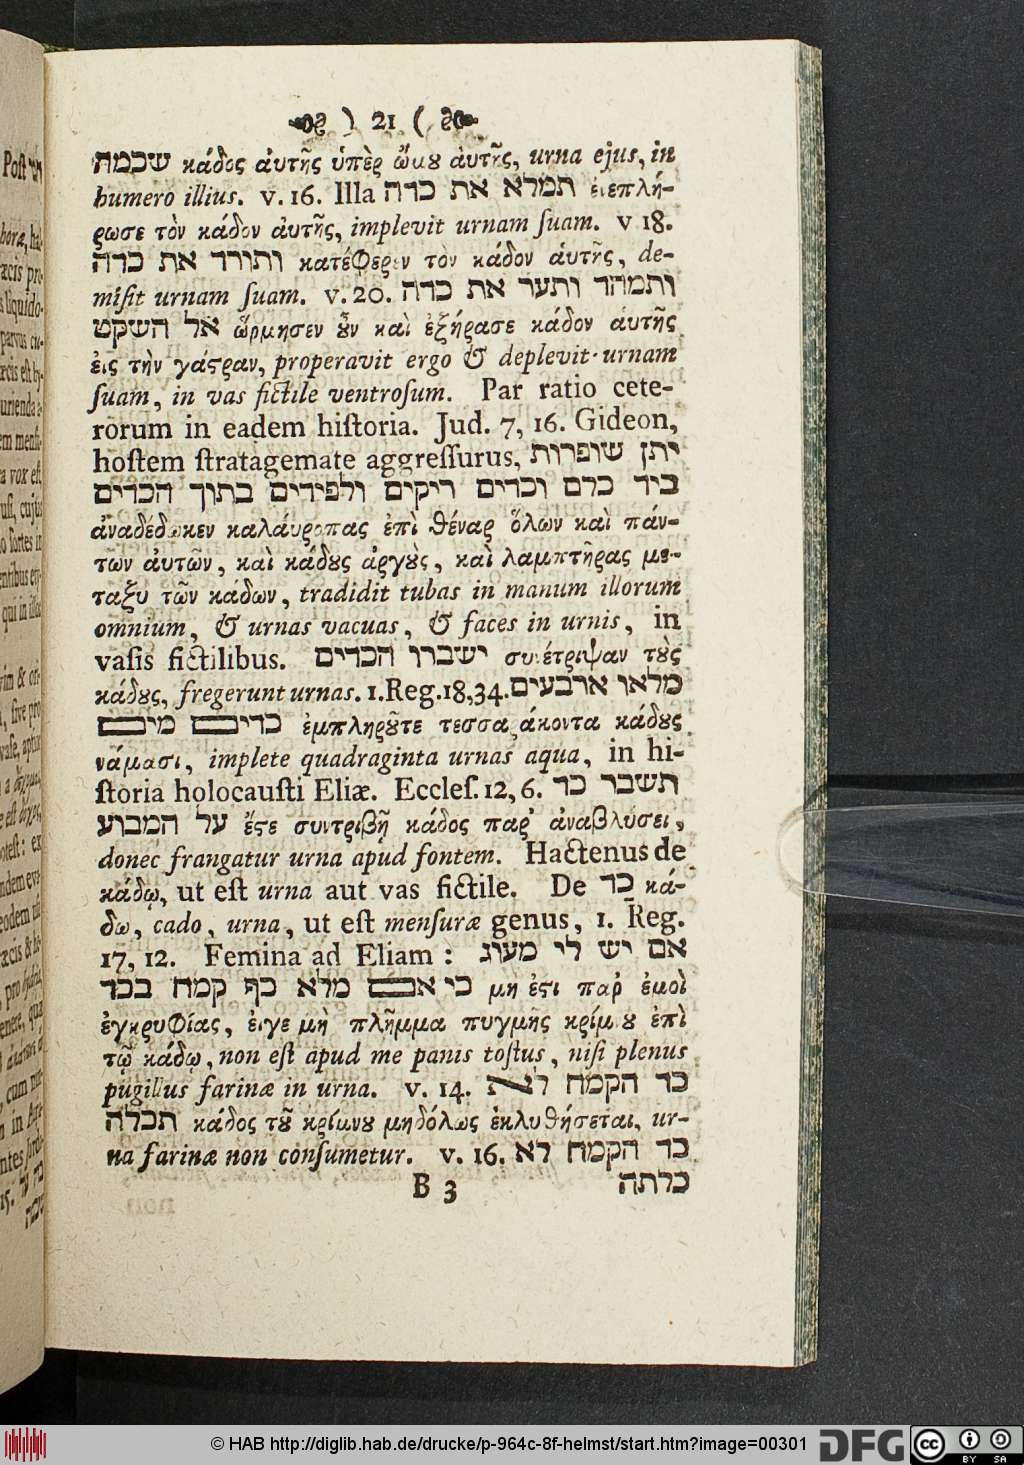 ) 21 (
שכמה κάδος ἀυτῆς ὑπὲρ ὤμȣ ἀυτῆς, urna ejus, in
humero illius. v. 16. Illa תמלא את כדה ἐνεπλή-
ρωσε τὸν κάδον ἀυτῆς, implevit urnam ſuam. v 18.
ותורד את כדה κατέφερεν τὸν κάδον ἀυτῆς, de-
miſit urnam ſuam. v. 20. ותמהר ותער את כדה
אל השקט ὥρμησεν ȣ̓ν καὶ ἐξήρασε κάδον ἁυτῆς
ἐις τὴν γάςραν, properavit ergo & deplevit urnam
ſuam, in vas fictile ventroſum. Par ratio cete-
rorum in eadem hiſtoria. Jud. 7, 16. Gideon,
hoſtem ſtratagemate aggreſſurus, יתן שופרות
ביד כלם וכדים ריקים ולפידים בתוך הכדים
ἀναδέδωκεν καλάυροπας ἐπὶ θέναρ ὅλων καὶ πάν-
των ἀυτῶν, καὶ κάδȣς ἀργȣ̀ς, καὶ λαμπτῆρας με-
ταξυ τῶν κάδων, tradidit tubas in manum illorum
omnium, & urnas vacuas, & faces in urnis, in
vaſis fictilibus. ישברו הכדים συνέτριψαν τȣ̀ς
κάδȣς, fregerunt urnas. 1. Reg. 18, 34. מלאו ארבעים
כדים מים ἐμπληρȣ͂τε τεσσαράκοντα κάδȣς
νάμασι, implete quadraginta urnas aqua, in hi-
ſtoria holocauſti Eliæ. Eccleſ. 12, 6. תשבר כד
על המבוע ἔςε συντριβῇ κάδος παρ' ἀναβλύσει,
donec frangatur urna apud fontem. Hactenus de
κάδῳ, ut eſt urna aut vas fictile. De כד κά-
δω, cado, urna, ut eſt menſuræ genus, 1. Reg.
17, 12. Femina ad Eliam: אם יש לי מעוג
כי אם מלא כף קמח בכד μη ἐςι παρ' ἐμοὶ
ἐγκρυφίας, ἐιγε μὴ πλῆμμα πυγμῆς κρίμνȣ ἐπὶ
τῷ κάδῳ, non eſt apud me panis toſtus, niſi plenus
pugillus farinæ in urna. v. 14. כד הקמח לא
תכלה κάδος τȣ͂ κρίμνȣ μηδόλως ἐκλυθήσεται, ur-
na farinæ non conſumetur. v. 16. כד הקמח לא
B 3 כלתה
© HAB http://diglib.hab.de/drucke/p-964c-8f-helmst/start.htm?image=00301 DFG cc BY SA